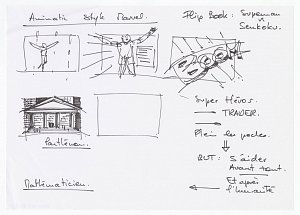 Animatic Style Marvel.
Flip Book: Superman
Senkoku.
Super Héros
TRADER.
Plein les poches.
BUT: S'aider
Avant tout.
Et après
l'humanité
Panthéon.
Mathématicien.